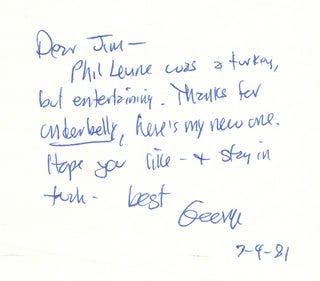 Dear Jim —
Phil Leune was a turkey,
but entertaining. Thanks for
underbelly, here's my new one.
Hope you like - & stay in
tuch - best
George
7-9-81